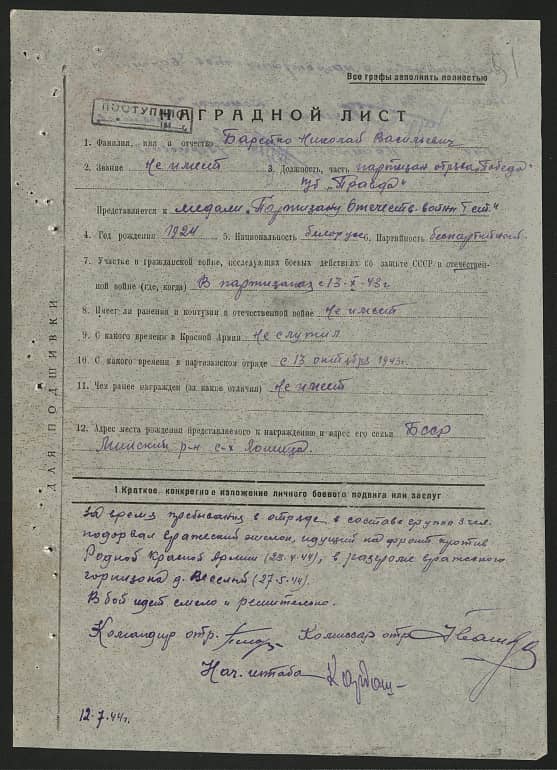 Все графы заполнять полностью
ПОСТУПИЛО
НАГРАДНОЙ ЛИСТ
1. Фамилия, имя и отчество Барейко Николай Васильевич
2. Звание Не имеет 3. Должность, часть партизан отряда „Победа“
п/б „Правда“
Представляется к медали „Партизану Отечеств. войны I ст.“
4. Год рождения 1924 5. Национальность белорус 6. Партийность беспартийный
7. Участие в гражданской войне, последующих боевых действиях по защите СССР и отечествен-
ной войне (где, когда) В партизанах с 13-X-43 г
8. Имеет ли ранения и контузии в отечественной войне Не имеет
9. С какого времени в Красной Армии Не служил
10. С какого времени в партизанском отряде с 13 октября 1943 г.
11. Чем ранее награжден (за какие отличия) Не имеет
12. Адрес места рождения представляемого к награждению и адрес его семьи БССР
Минский р-н с-х Лошица.
ДЛЯ ПОДШИВКИ
1. Краткое, конкретное изложение личного боевого подвига или заслуг
За время пребывания в отряде в составе группы 3 чел.
подорвал вражеский эшелон, идущий на фронт против
Родной Красной Армии (23.4.44), в разгроме вражеского
горнизона д. (27.5.44).
В бой идет смело и решительно.
Командир отр. Комиссар отр.
Нач. штаба
12.7.44 г.